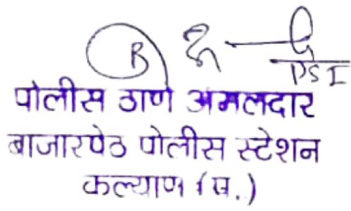 B
PSI
पोलीस ठाणे अमलदार
बाजारपेठ पोलीस स्टेशन
कल्याण (प.)